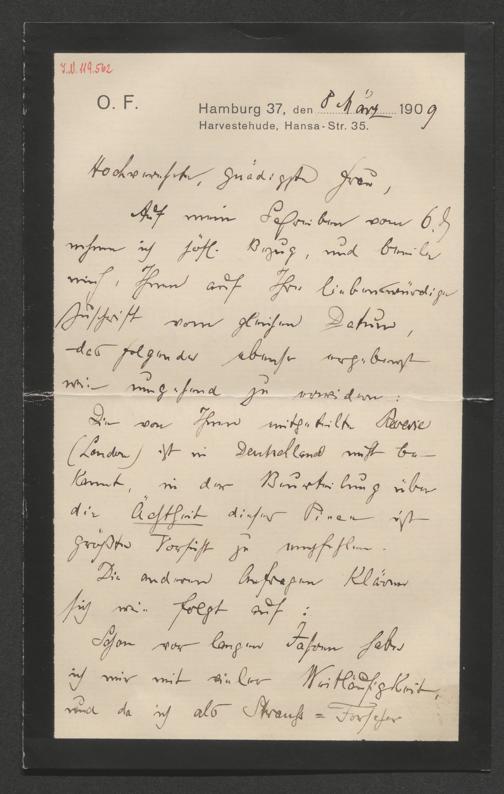 I.N. 119.562
O. F.
Hamburg 37, den 8 März 1909
Harvestehude, Hansa-Str. 35.
Hochverehrte, gnädigste Frau,
Auf mein Schreiben vom 6. ds
nehme ich höfl. Bezug, und beeile
mich, Ihnen auf Ihre liebenswürdige
Zuschrift vom gleichen Datum,
das folgende ebenso ergebenst
wie umgehend zu erwidern:
Die von Ihnen mitgeteilte Reverie
(London) ist in Deutschland nicht be-
kannt, in der Beurteilung über
die Ächtheit dieser Pieçe ist
größte Vorsicht zu empfehlen.
Die anderen Anfragen klären
sich wie folgt auf:
Schon vor langen Jahren habe
ich mir mit vieler Weitläufigkeit,
und da ich als Strauss=Forscher